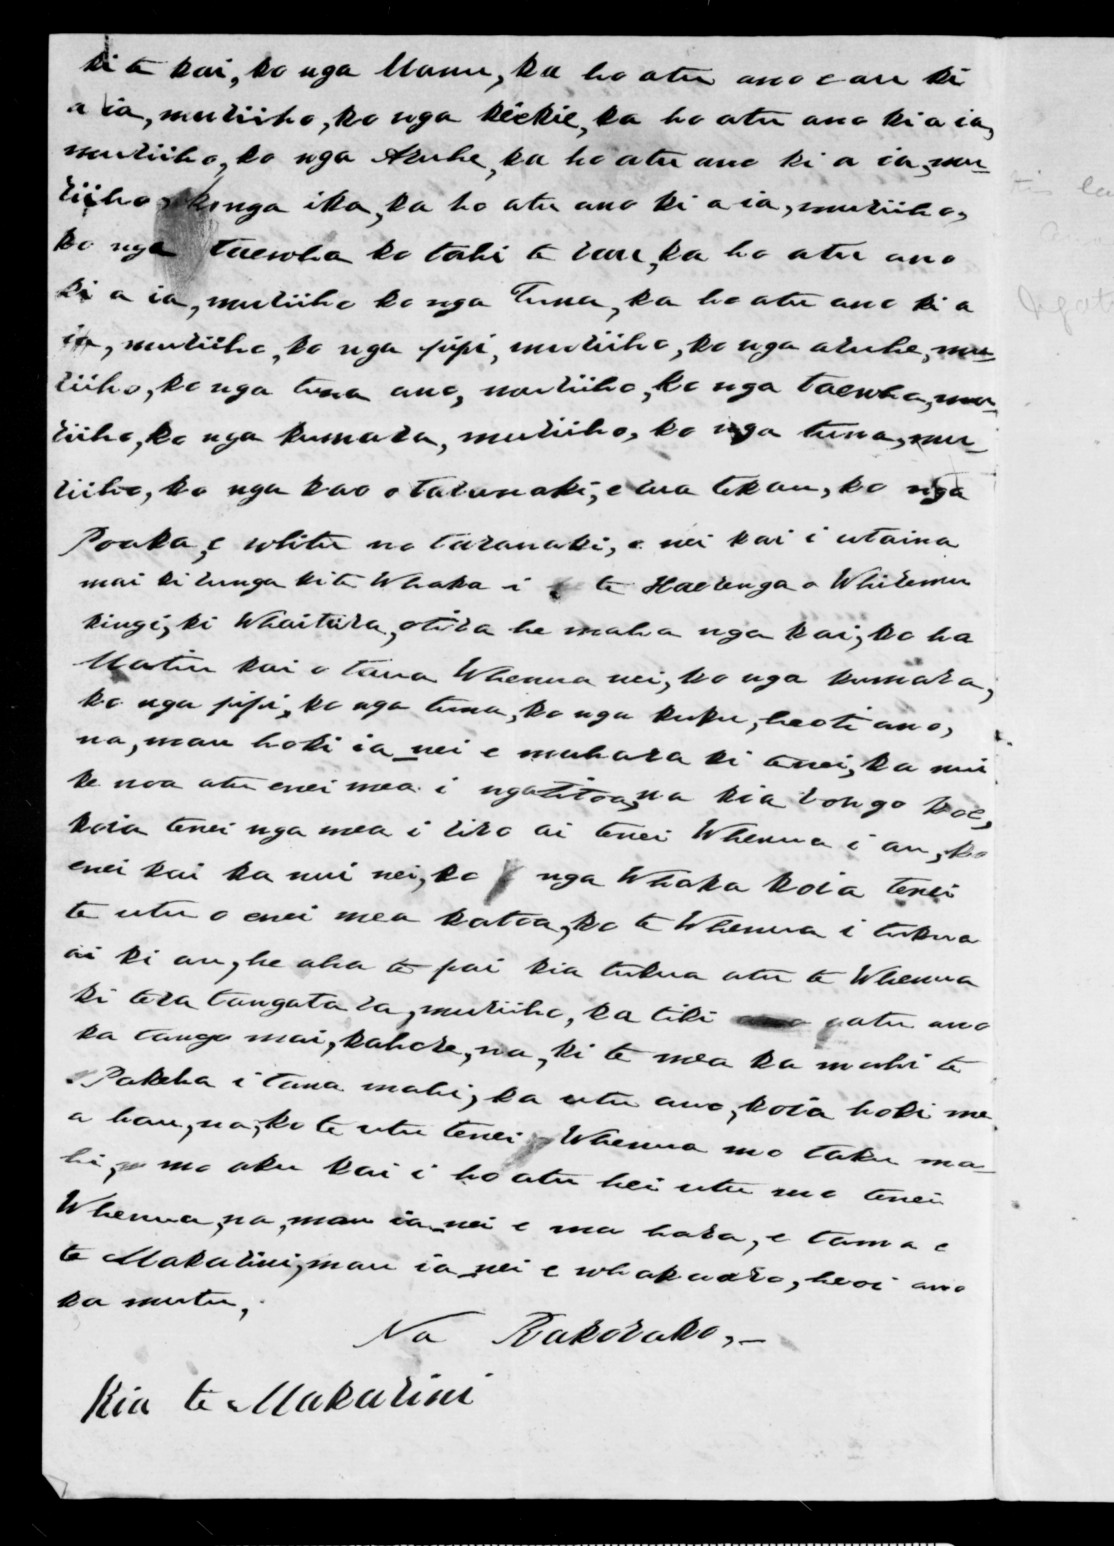 ki te kai, ko nga Manu, ka ho atu ano e au ki
a ia, muriiho, ko nga kiekie, ka ho atu ano ki a ia,
muriiho, ko nga Aruhe, ka ho atu ano ki a ia, mu-
riiho, ko nga ika, ka ho atu ano ki a ia, muriiho,
ko nga taewha ko tahi te rau, ka ho atu ano
ki a ia, muriiho ko nga Tuna, ka ho atu ano ki a
ia, muriiho, ko nga pipi, muriiho, ko nga aruhe, mu-
riiho, ko nga tuna ano, muriiho, ko nga taewha, mu-
riiho, ko nga kumara, muriiho, ko nga tuna, mu-
riiho, ko nga kao o taranaki, e rua tekau, ko nga
Poaka, e whitu no taranaki, e nei kai i utaina
mai ki runga ki te Whaka i te Haerenga o Whiremu
kingi, ki Whaitira, otira he maha nga kai, ko ha
Matiu kai o taua Whenua nei, ko nga kumara,
ko nga pipi, ko nga tuna, ko nga kuku, heoti ano,
na, mau hoki ia_nei e mahara ki tenei, ka nui
ke noa atu enei mea i ngatitoa, na kia rongo koe,
koia tenei nga mea i riro ai tenei Whenua i au, ko
enei kai ka nui nei, ko nga Whaka koia tenei
te utu o enei mea katoa, ko te Whenua i tukua
ai ki au, he aha te pai kia tukua atu te Whenua
ki tera tangata ra, muriiho, ka tiki atu ano
ka tango mai, kahore, na, ki te mea ka mahi te
Pakeha i tana mahi, ka utu ano, koia hoki me
a hau, na, ko te utu tenei Whenua mo taku ma-
hi, mo aku kai i ho atu hei utu mo tenei
Whenua, na, mau ia_nei e ma hara, e tama e
te Makarini, mau ia_nei e whakaaro, heoi ano
ka mutu,
Na Rakorako,_
Kia te Makarini